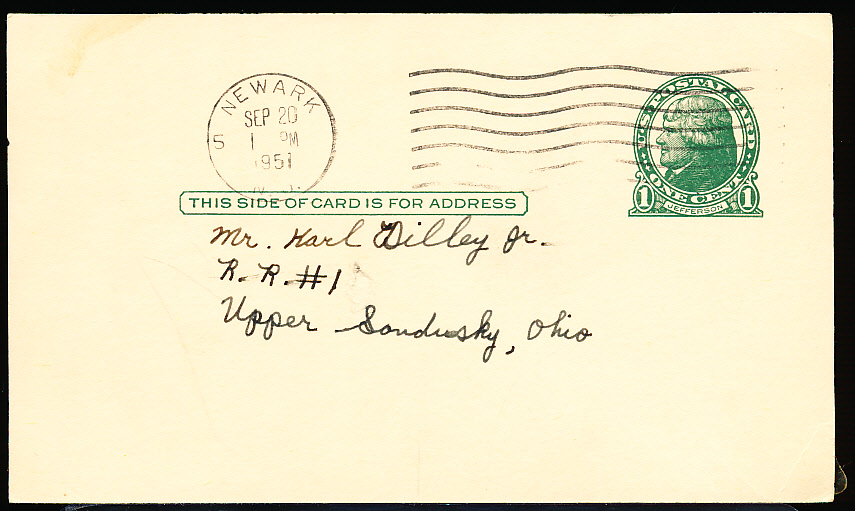 NEWARK
SEP 20
5 1 PM
1951
N. J.
U.S. POSTAL CARD
ONE CENT
1 JEFFERSON 1
THIS SIDE OF CARD IS FOR ADDRESS
Mr. Karl Dilley Jr.
R. R. #1
Upper Sandusky, Ohio